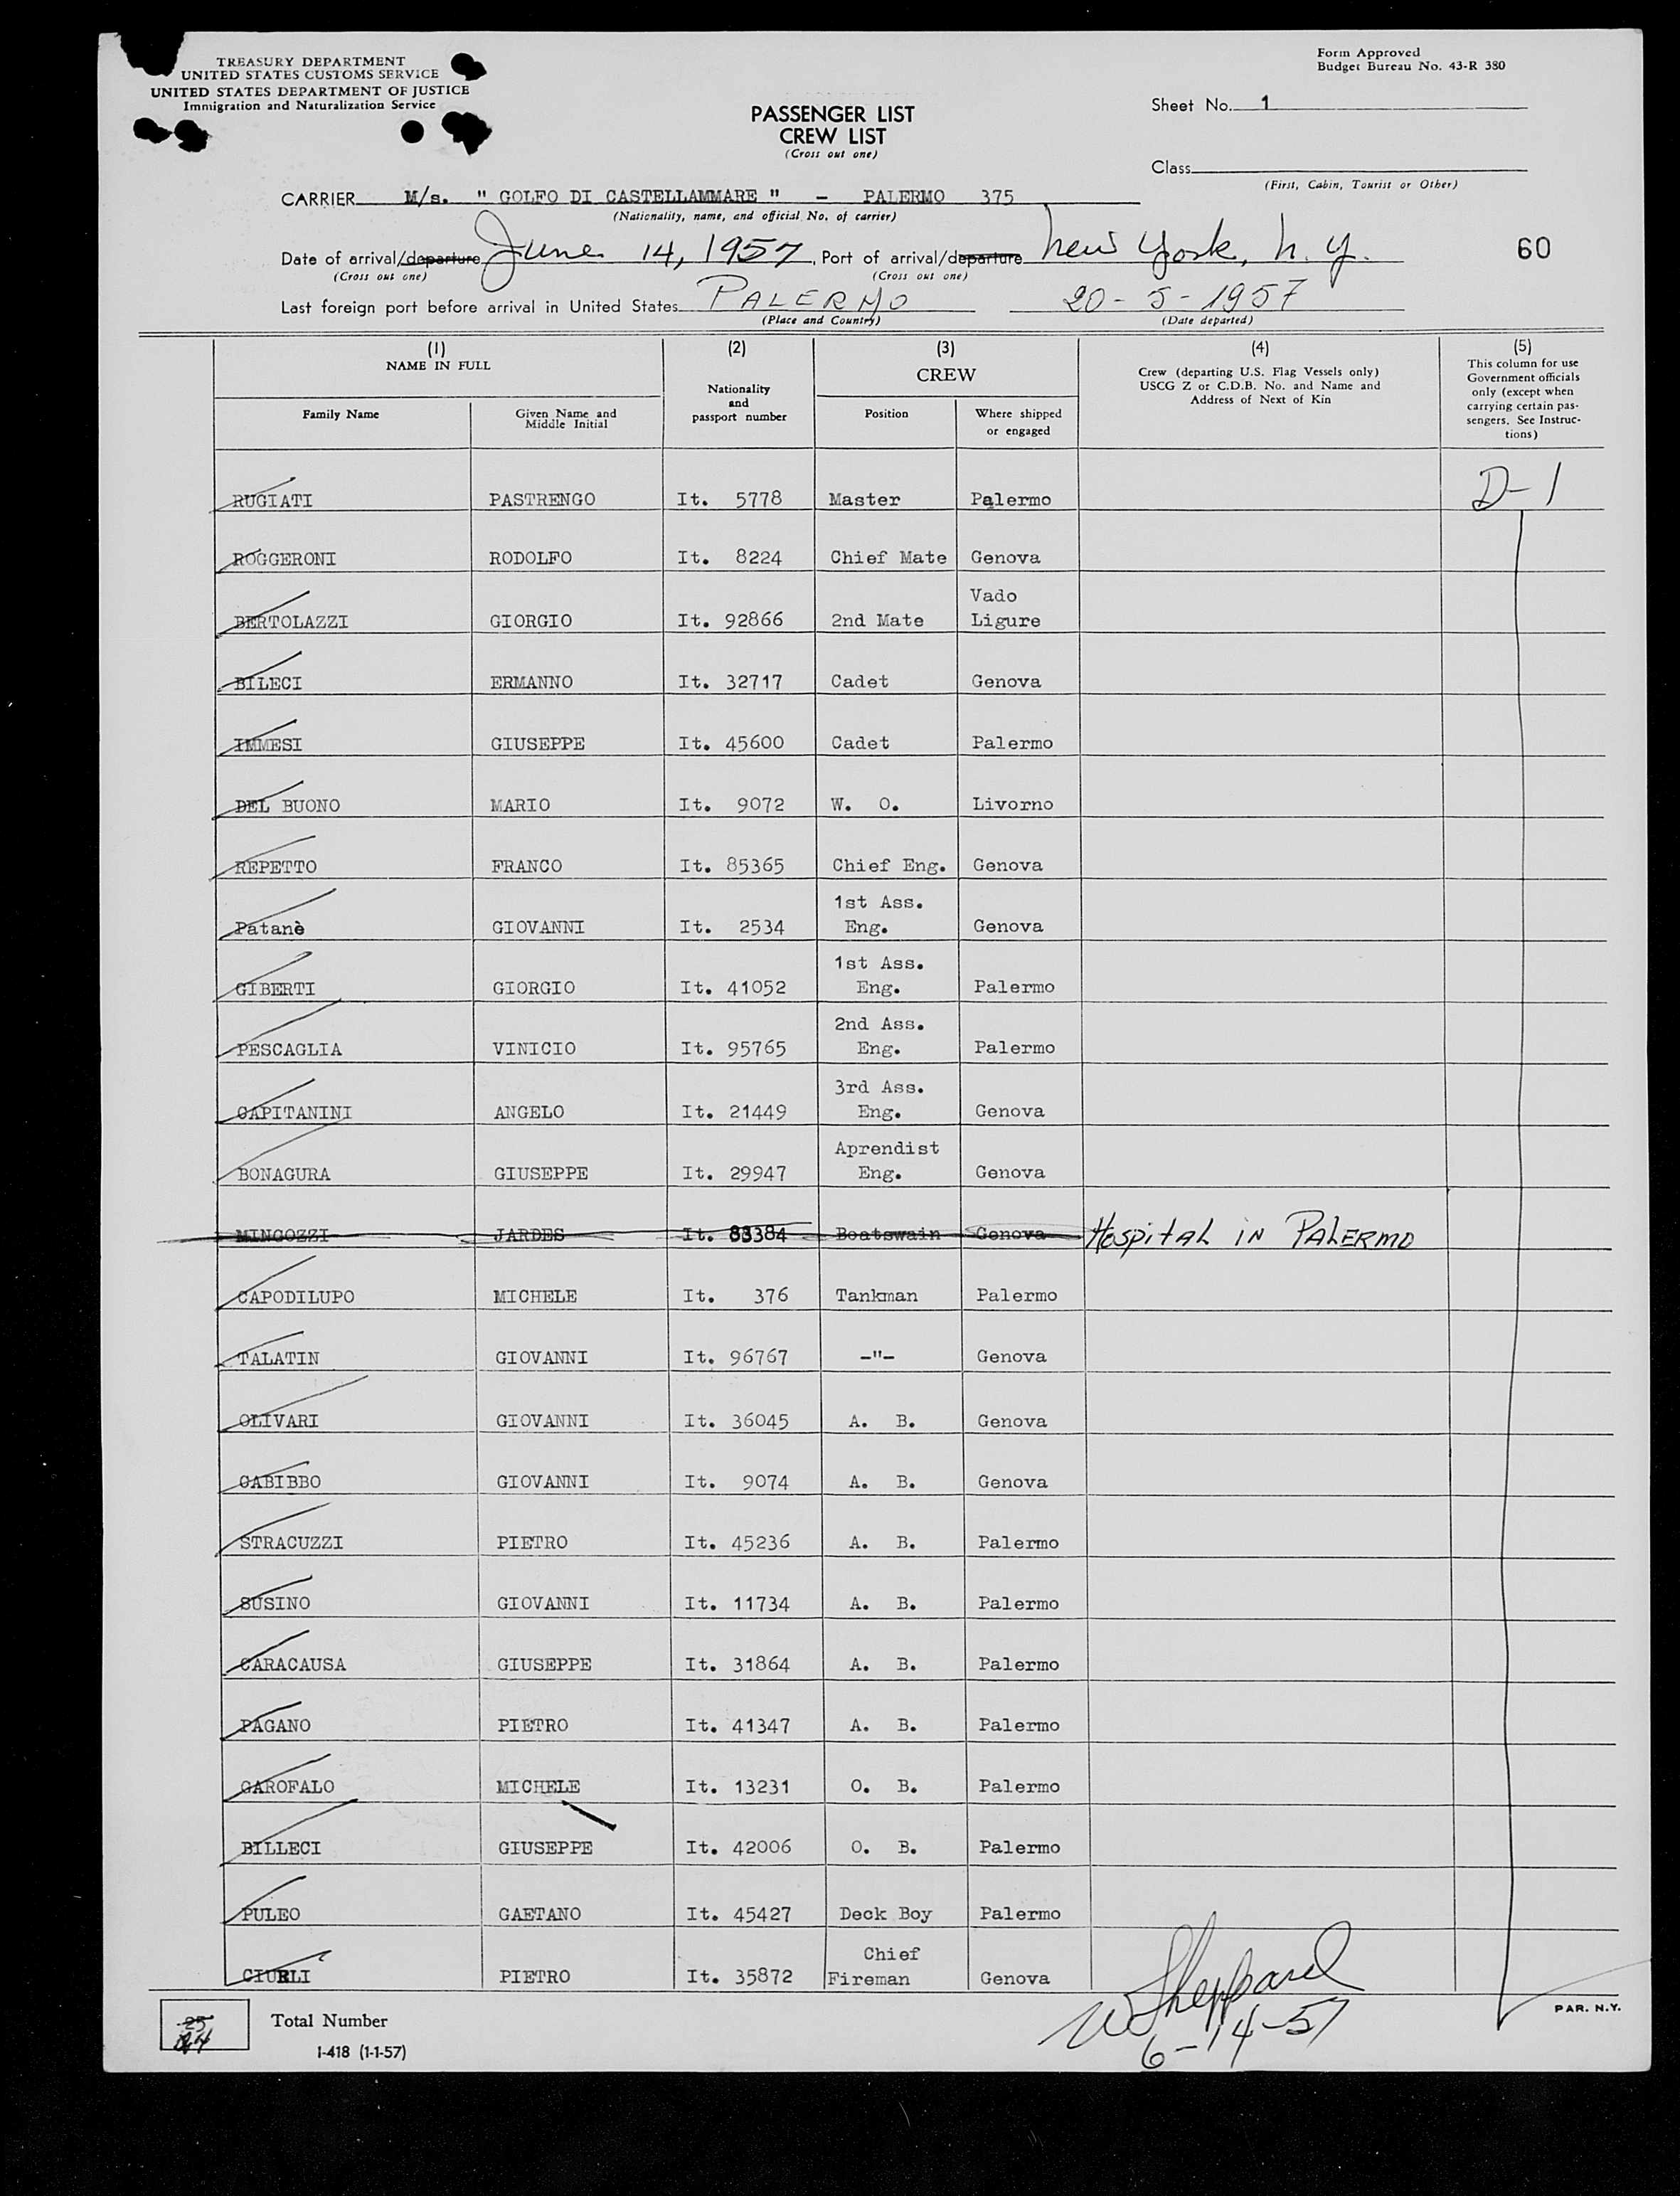 TREASURY DEPARTMENT
UNITED STATES CUSTOMS SERVICE
UNITED STATES DEPARTMENT OF JUSTICE
Immigration and Naturalization Service
Form Approved
Budget Bureau No. 43-R 380
PASSENGER LIST
CREW LIST
(Cross out one)
Sheet No. 1
Class
(First, Cabin, Tourist or Other)
CARRIER M/s. " GOLFO DI CASTELLAMMARE " - PALERMO 375
(Nationality, name, and official No. of carrier)
Date of arrival/departure June 14, 1957, Port of arrival/departure New York, N.Y.
60
(Cross out one) (Cross out one)
Last foreign port before arrival in United States PALERMO 20-5-1957
(Place and Country) (Date departed)
(1) (2) (3) (4) (5)
NAME IN FULL
Family Name
Given Name and
Middle Initial
Nationality
and
passport number
CREW
Position
Where shipped
or engaged
Crew (departing U.S. Flag Vessels only)
USCG Z or C.D.B. No. and Name and
Address of Next of Kin
This column for use
Government officials
only (except when
carrying certain pas-
sengers. See Instruc-
tions)
RUGIATI PASTRENGO It. 5778 Master Palermo D-1
ROGGERONI RODOLFO It. 8224 Chief Mate Genova
BERTOLAZZI GIORGIO It. 92866 2nd Mate Vado
Ligure
BILECI ERMANNO It. 32717 Cadet Genova
IMMESI GIUSEPPE It. 45600 Cadet Palermo
DEL BUONO MARIO It. 9072 W. O. Livorno
REPETTO FRANCO It. 85365 Chief Eng. Genova
Patanè GIOVANNI It. 2534 1st Ass.
Eng. Genova
GIBERTI GIORGIO It. 41052 1st Ass.
Eng. Palermo
PESCAGLIA VINICIO It. 95765 2nd Ass.
Eng. Palermo
CAPITANINI ANGELO It. 21449 3rd Ass.
Eng. Genova
BONAGURA GIUSEPPE It. 29947 Aprendist
Eng. Genova
MINGOZZI JARDES It. 83384 Boatswain Genova Hospital in Palermo
CAPODILUPO MICHELE It. 376 Tankman Palermo
TALATIN GIOVANNI It. 96767 -"- Genova
OLIVARI GIOVANNI It. 36045 A. B. Genova
GABIBBO GIOVANNI It. 9074 A. B. Genova
STRACUZZI PIETRO It. 45236 A. B. Palermo
SUSINO GIOVANNI It. 11734 A. B. Palermo
CARACAUSA GIUSEPPE It. 31864 A. B. Palermo
PAGANO PIETRO It. 41347 A. B. Palermo
GAROFALO MICHELE It. 13231 O. B. Palermo
BILLECI GIUSEPPE It. 42006 O. B. Palermo
PULEO GAETANO It. 45427 Deck Boy Palermo
CIURLI PIETRO It. 35872 Chief
Fireman Genova
W Sheppard
6-14-57
25
24
Total Number
I-418 (1-1-57)
PAR. N.Y.